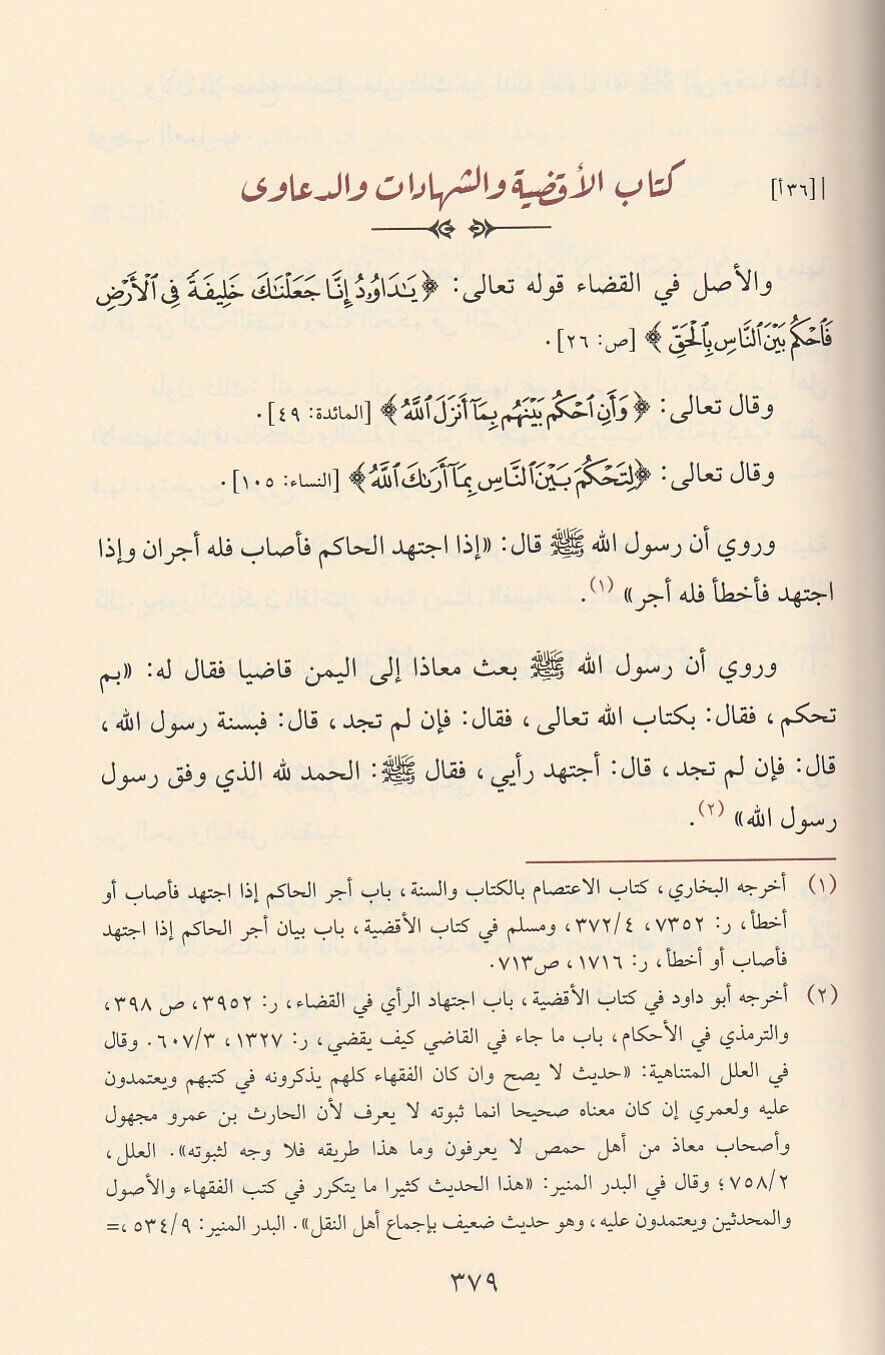 [٣٦أ]
كتاب الأقضية والشهادات والدعاوى
والأصل في القضاء قوله تعالى: ﴿يَٰدَاوُۥدُ إِنَّا جَعَلْنَٰكَ خَلِيفَةً فِى ٱلْأَرْضِ
فَٱحْكُم بَيْنَ ٱلنَّاسِ بِٱلْحَقِّ﴾ [ص: ٢٦].
وقال تعالى: ﴿وَأَنِ ٱحْكُم بَيْنَهُم بِمَآ أَنزَلَ ٱللَّهُ﴾ [المائدة: ٤٩].
وقال تعالى: ﴿لِتَحْكُمَ بَيْنَ ٱلنَّاسِ بِمَآ أَرَىٰكَ ٱللَّهُ﴾ [النساء: ١٠٥].
وروي أن رسول الله ﷺ قال: «إذا اجتهد الحاكم فأصاب فله أجران وإذا
اجتهد فأخطأ فله أجر» (١).
وروي أن رسول الله ﷺ بعث معاذا إلى اليمن قاضيا فقال له: «بم
تحكم، فقال: بكتاب الله تعالى، فقال: فإن لم تجد، قال: فبسنة رسول الله،
قال: فإن لم تجد، قال: أجتهد رأيي، فقال ﷺ: الحمد لله الذي وفق رسول
رسول الله» (٢).
(١) أخرجه البخاري، كتاب الاعتصام بالكتاب والسنة، باب أجر الحاكم إذا اجتهد فأصاب أو
أخطأ، ر: ٧٣٥٢، ٣٧٢/٤، ومسلم في كتاب الأقضية، باب بيان أجر الحاكم إذا اجتهد
فأصاب أو أخطأ، ر: ١٧١٦، ص٧١٣.
(٢) أخرجه أبو داود في كتاب الأقضية، باب اجتهاد الرأي في القضاء، ر: ٣٩٥٢، ص ٣٩٨،
والترمذي في الأحكام، باب ما جاء في القاضي كيف يقضي، ر: ١٣٢٧، ٦٠٧/٣. وقال
في العلل المتناهية: «حديث لا يصح وان كان الفقهاء كلهم يذكرونه في كتبهم ويعتمدون
عليه ولعمري إن كان معناه صحيحا انما ثبوته لا يعرف لأن الحارث بن عمرو مجهول
وأصحاب معاذ من أهل حمص لا يعرفون وما هذا طريقه فلا وجه لثبوته». العلل،
٧٥٨/٢؛ وقال في البدر المنير: «هذا الحديث كثيرا ما يتكرر في كتب الفقهاء والأصول
والمحدثين ويعتمدون عليه، وهو حديث ضعيف بإجماع أهل النقل». البدر المنير: ٥٣٤/٩،=
٣٧٩